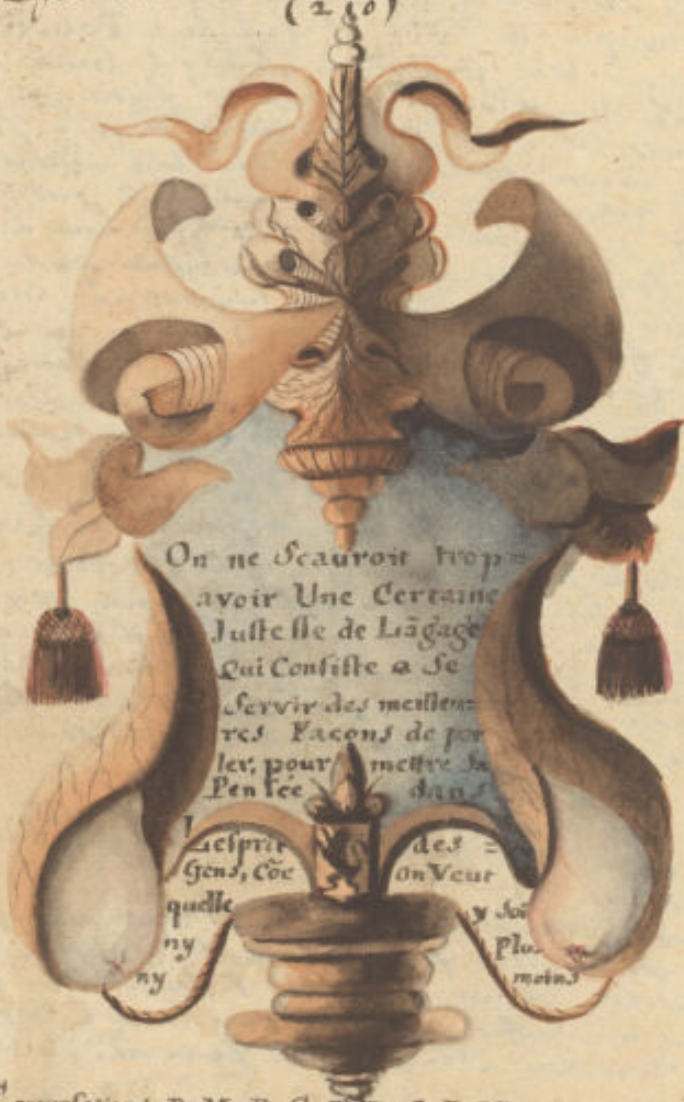 (210)
On ne Scauroit trop
avoir Une Certaine
Justesse de Lãgage
Qui Consiste a Se
Servir des meilleu=
res Façons de par
ler, pour mettre Sa
Pensée dans
Lesprit des =
Gens, Cõe on Veut
quelle y soit
ny plus
ny moins